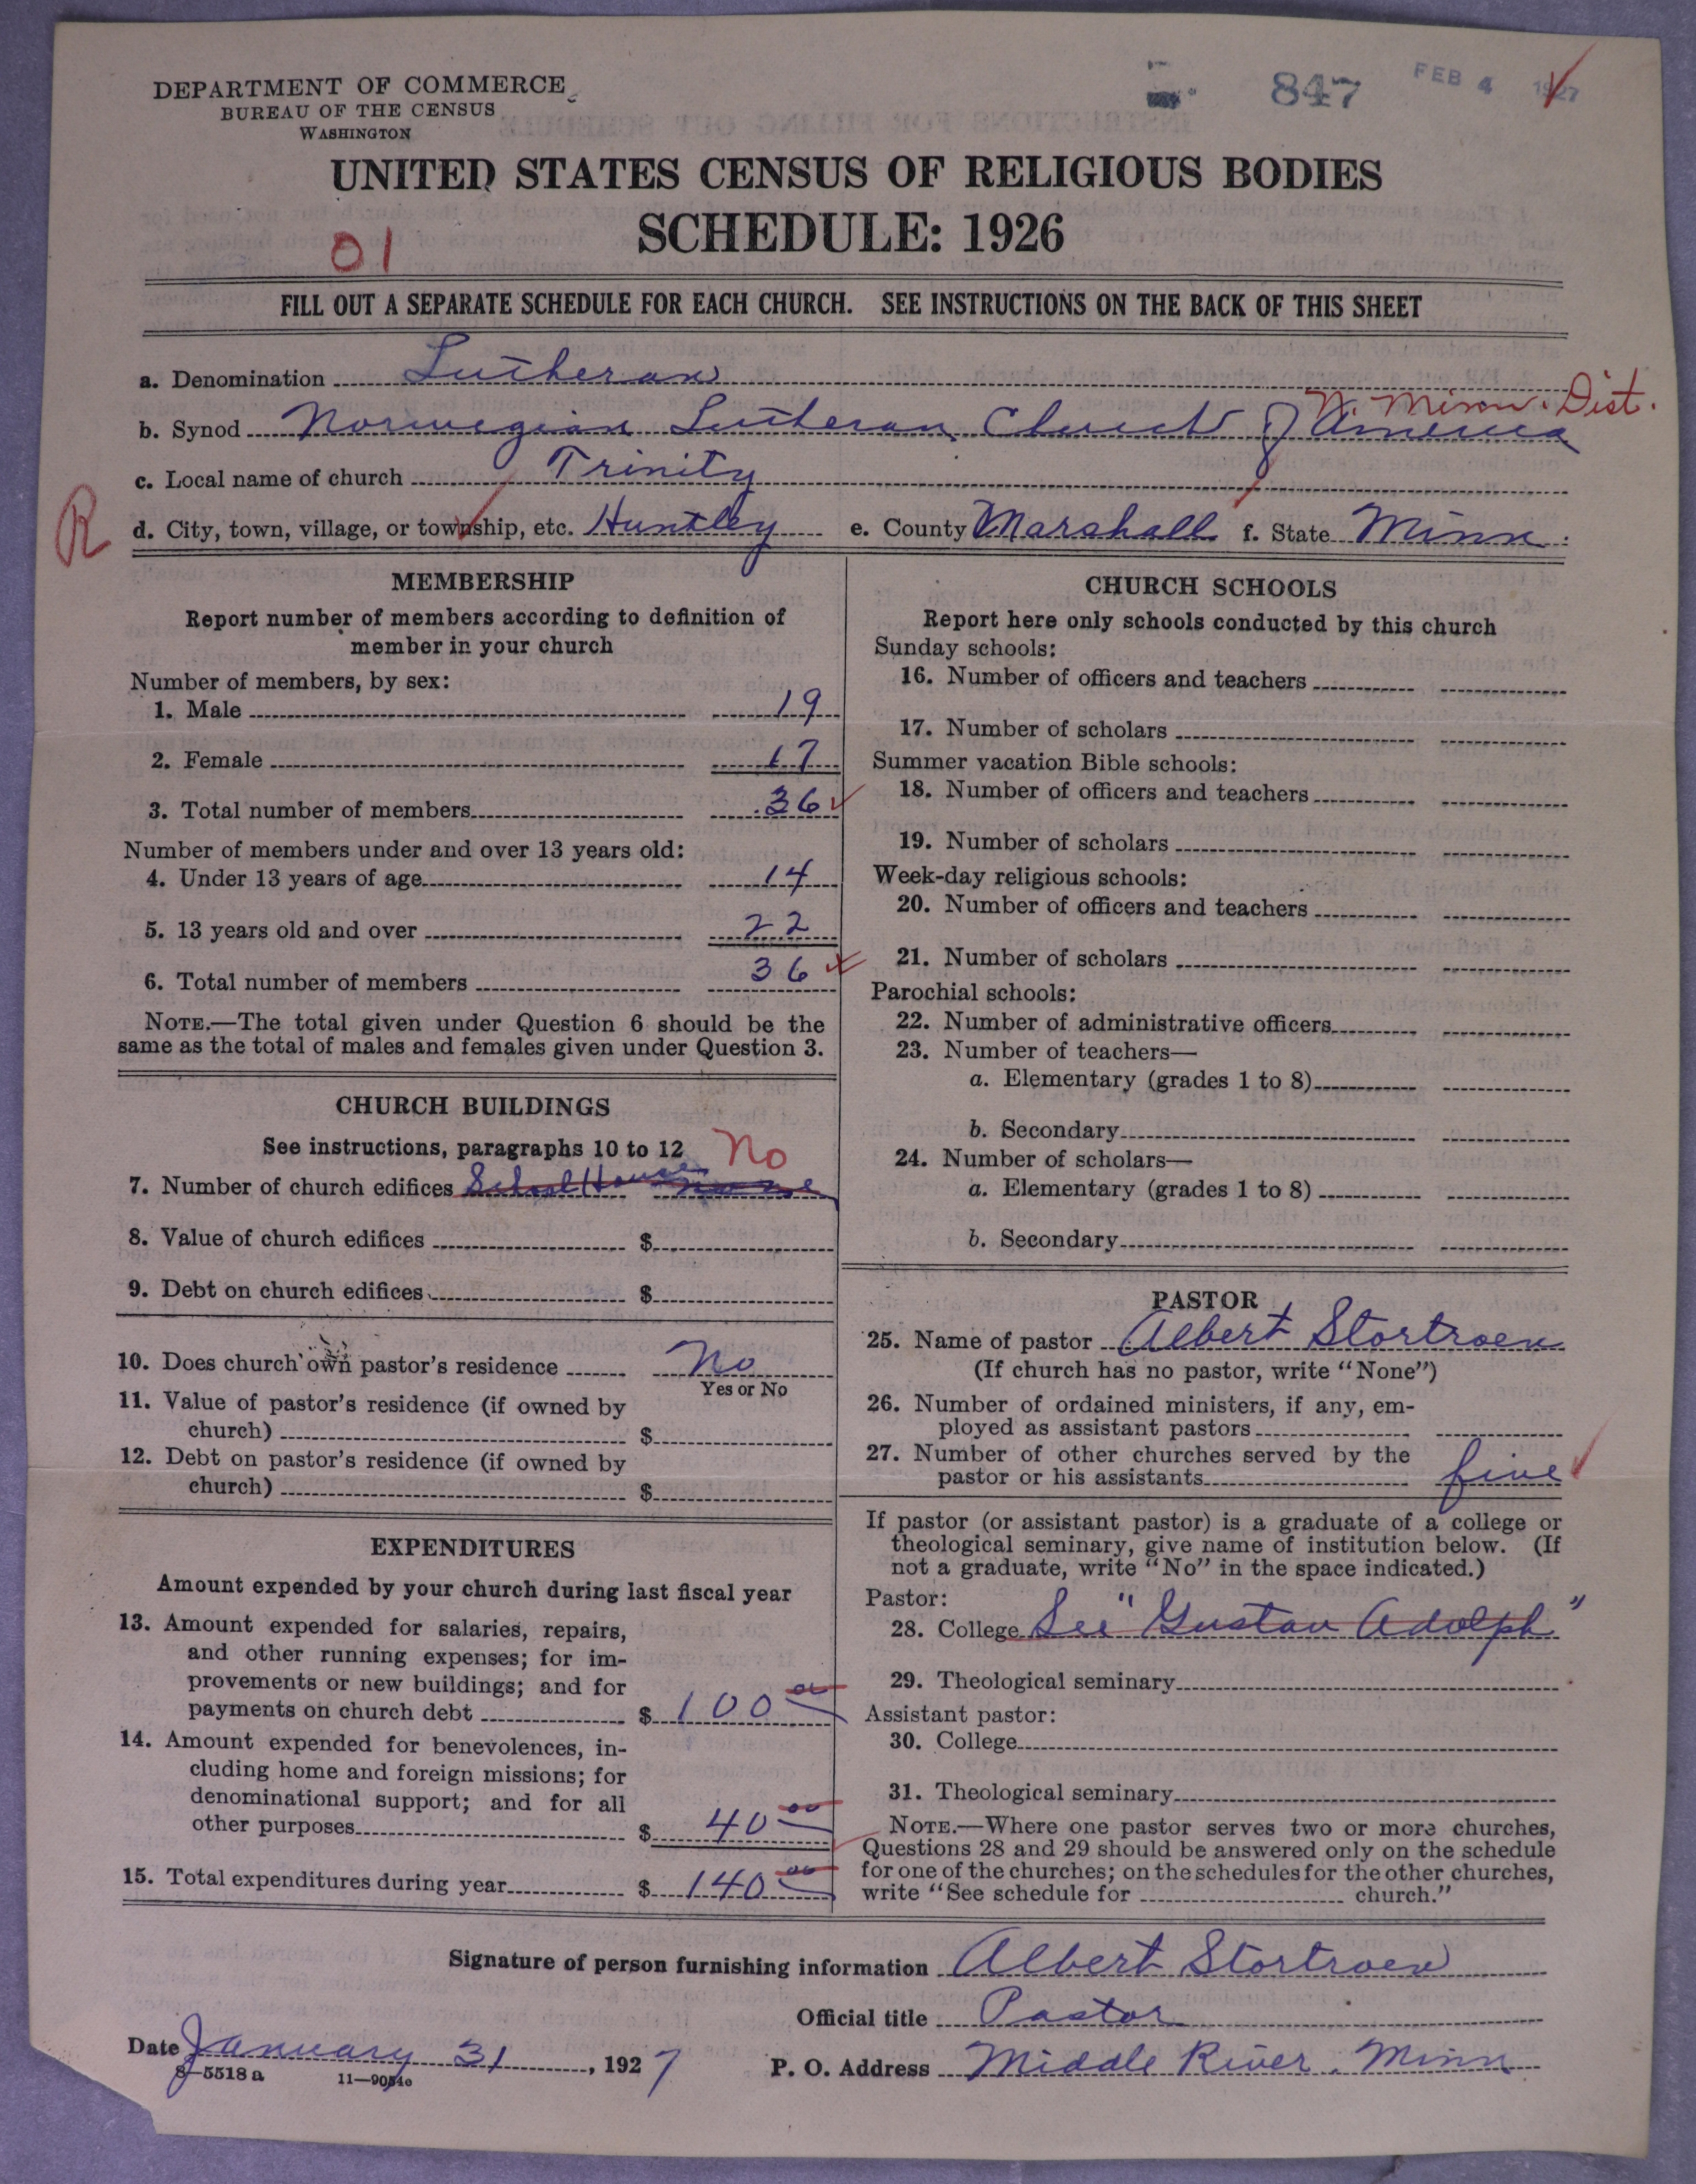 DEPARTMENT OF COMMERCE
BUREAU OF THE CENSUS
WASHINGTON
847
FEB 4 1927
UNITED STATES CENSUS OF RELIGIOUS BODIES
SCHEDULE: 1926
01
FILL OUT A SEPARATE SCHEDULE FOR EACH CHURCH. SEE INSTRUCTIONS ON THE BACK OF THIS SHEET
a. Denomination Lutheran
N. Minn. Dist.
b. Synod Norwegian Lutheran Church of America
c. Local name of church Trinity
R
d. City, town, village, or township, etc. Huntley e. County Marshall f. State Minn.
MEMBERSHIP
Report number of members according to definition of
member in your church
Number of members, by sex:
1. Male 19
2. Female 17
3. Total number of members 36
Number of members under and over 13 years old:
4. Under 13 years of age 14
5. 13 years old and over 22
6. Total number of members 36
NOTE.—The total given under Question 6 should be the
same as the total of males and females given under Question 3.
CHURCH BUILDINGS
See instructions, paragraphs 10 to 12
No
7. Number of church edifices School House none
8. Value of church edifices $
9. Debt on church edifices $
10. Does church own pastor's residence No
Yes or No
11. Value of pastor's residence (if owned by
church) $
12. Debt on pastor's residence (if owned by
church) $
EXPENDITURES
Amount expended by your church during last fiscal year
13. Amount expended for salaries, repairs,
and other running expenses; for im-
provements or new buildings; and for
payments on church debt $ 100 00
14. Amount expended for benevolences, in-
cluding home and foreign missions; for
denominational support; and for all
other purposes $ 40 00
15. Total expenditures during year $ 140 00
CHURCH SCHOOLS
Report here only schools conducted by this church
Sunday schools:
16. Number of officers and teachers
17. Number of scholars
Summer vacation Bible schools:
18. Number of officers and teachers
19. Number of scholars
Week-day religious schools:
20. Number of officers and teachers
21. Number of scholars
Parochial schools:
22. Number of administrative officers
23. Number of teachers—
a. Elementary (grades 1 to 8)
b. Secondary
24. Number of scholars—
a. Elementary (grades 1 to 8)
b. Secondary
PASTOR
25. Name of pastor Albert Stortroen
(If church has no pastor, write "None")
26. Number of ordained ministers, if any, em-
ployed as assistant pastors
27. Number of other churches served by the
pastor or his assistants five
If pastor (or assistant pastor) is a graduate of a college or
theological seminary, give name of institution below. (If
not a graduate, write "No" in the space indicated.)
Pastor:
28. College See "Gustav Adolph"
29. Theological seminary
Assistant pastor:
30. College
31. Theological seminary
NOTE.—Where one pastor serves two or more churches,
Questions 28 and 29 should be answered only on the schedule
for one of the churches; on the schedules for the other churches,
write "See schedule for church."
Signature of person furnishing information Albert Stortroen
Official title Pastor
Date January 31, 1927 P. O. Address Middle River, Minn
8—5518a 11—9054c